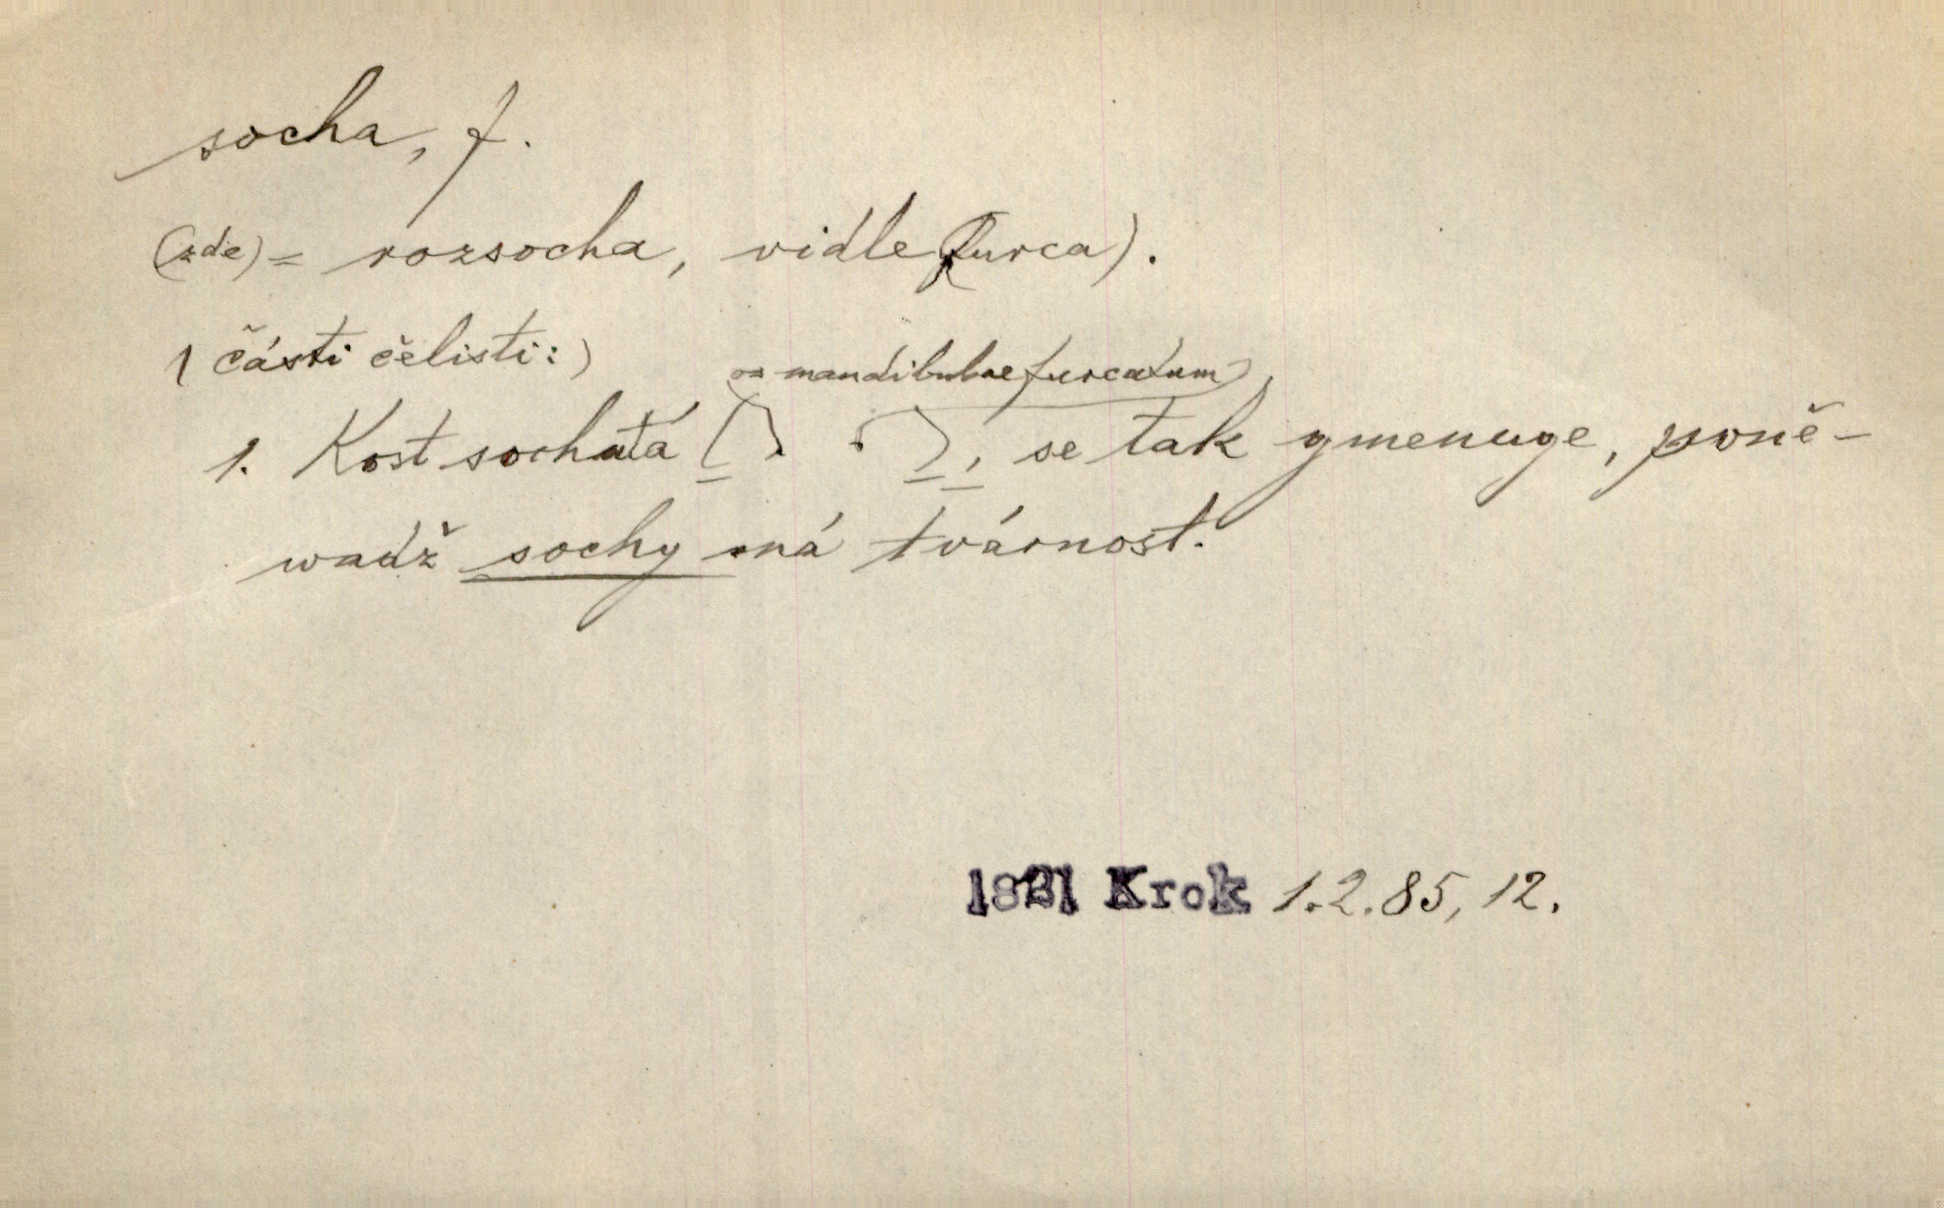 socha, f.
(zde) = rozsocha, vidle (furca).
(části čelisti:)
(os mandibulae furcatum)
1. Kost sochatá ( ), se tak gmenuge, poně-
wadž sochy má tvárnost.
1821 Krok 1.2.85, 12.